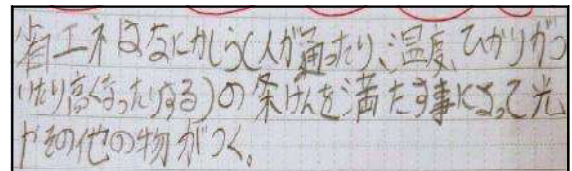 省エネはなにかしら(人が通ったり、温度、ひかりがつ
いたり高くなったりする)の条けんを満たす事によって光
やその他の物がつく。